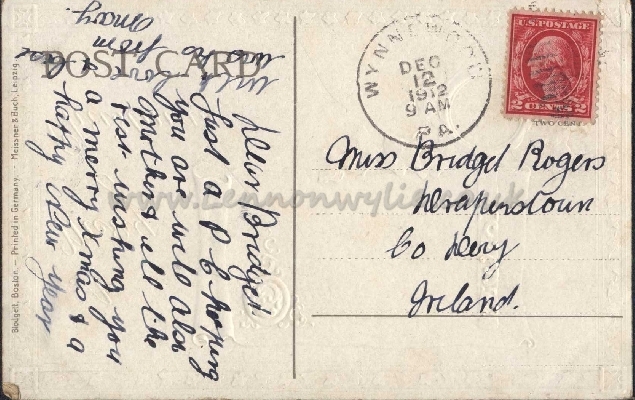 POST CARD
WYNNEWOOD
DEC
12
1912
9 AM
PA.
U.S. POSTAGE
2 CENTS 2
TWO CENT
Miss Bridget Rogers
Draperstown
Co Derry
Ireland.
Dear Bridget
Just a P C hoping
you are well also
Mother & all the
rest wishing you
a merry Xmas & a
happy New Year
from
Mary.
www.Lennonwylie.co.uk
Blodgett, Boston. — Printed in Germany. Meissner & Buch, Leipzig.